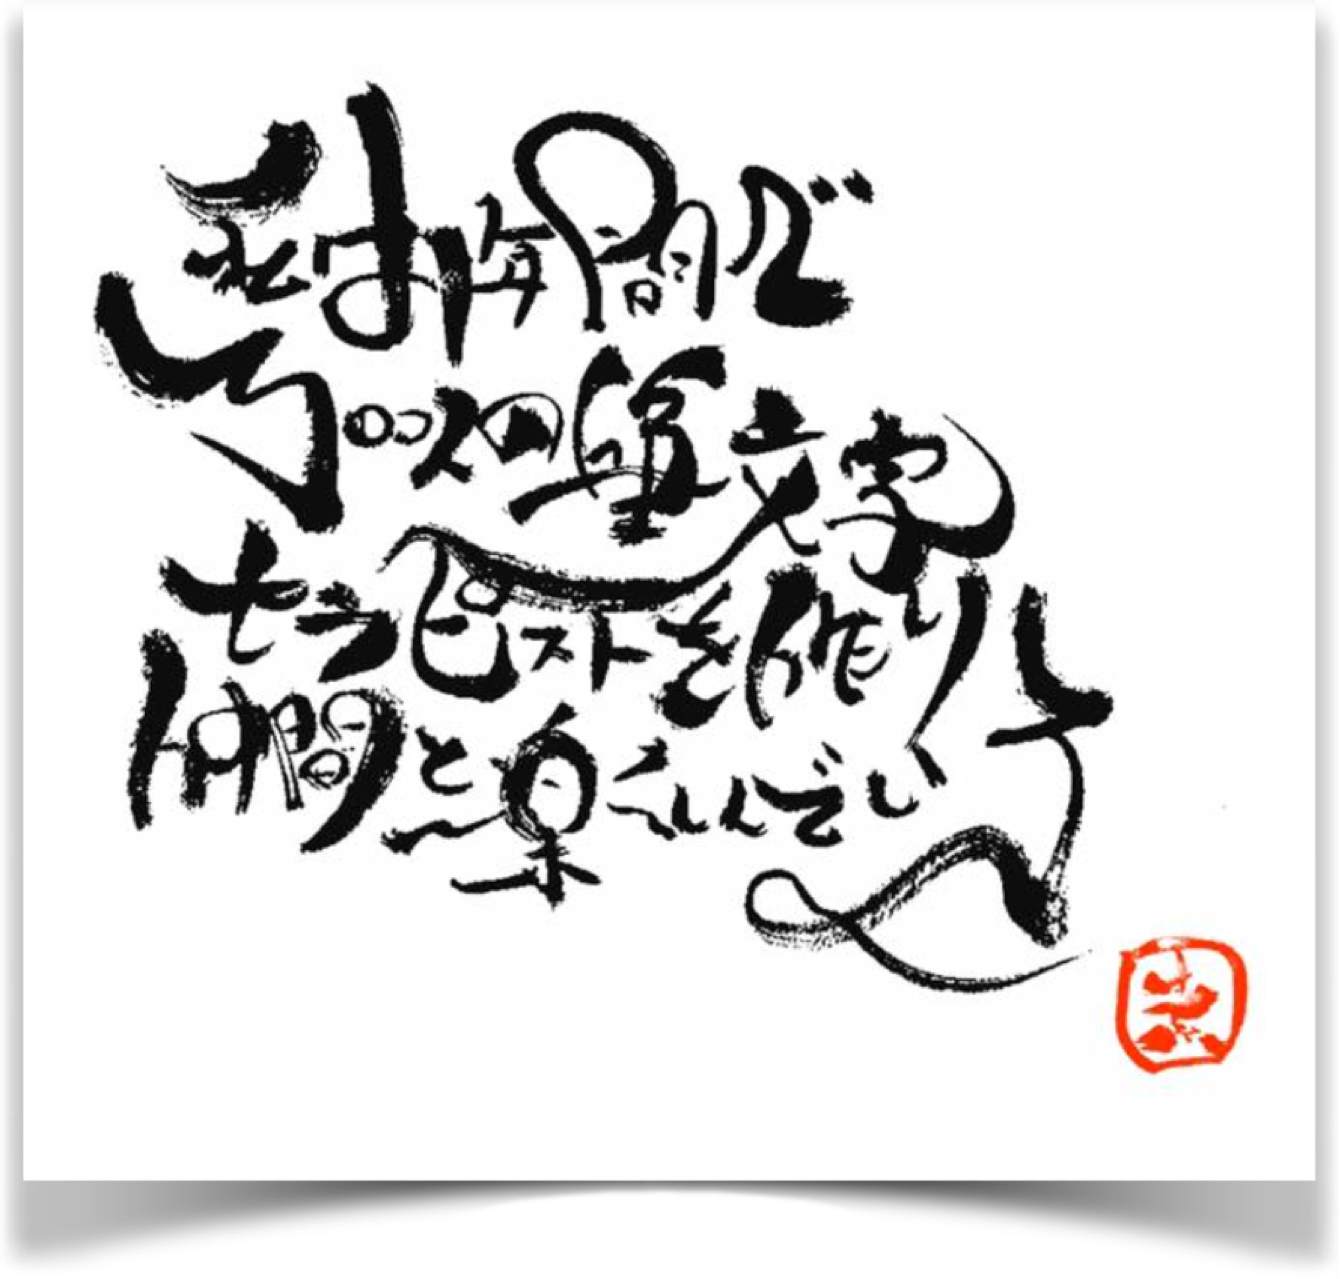 私は1年間で
300人の筆文字
セラピストを作り
仲間と楽しんでいる